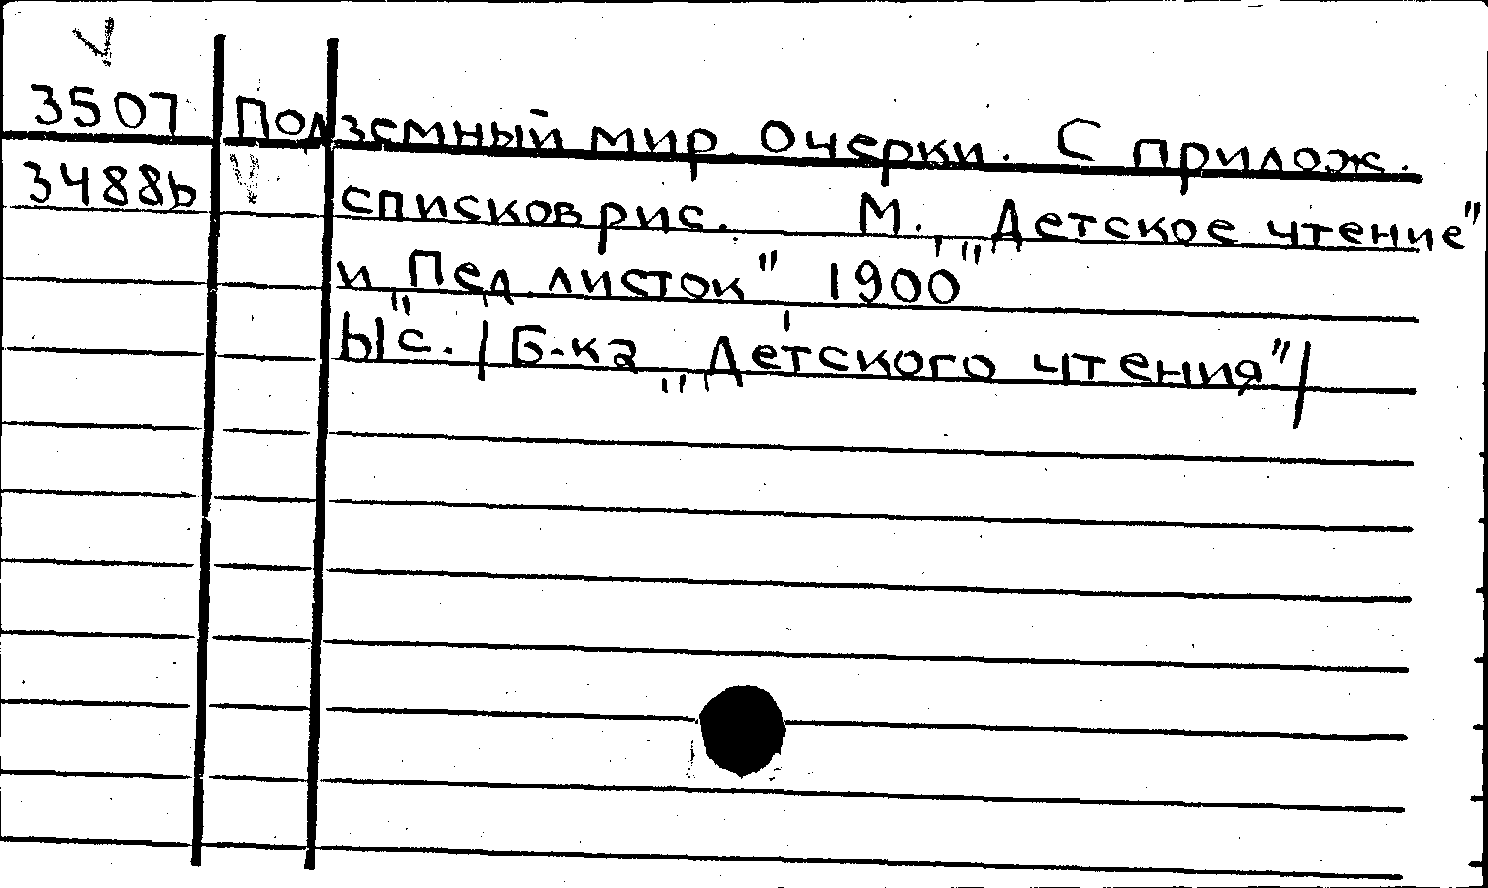 3507 Подземный мир. Очерки. С прилож.
3488ь списков рис. М., „Детское чтение"
и „Пед. листок", 1900
61 с. /Б-ка „Детского чтения"/